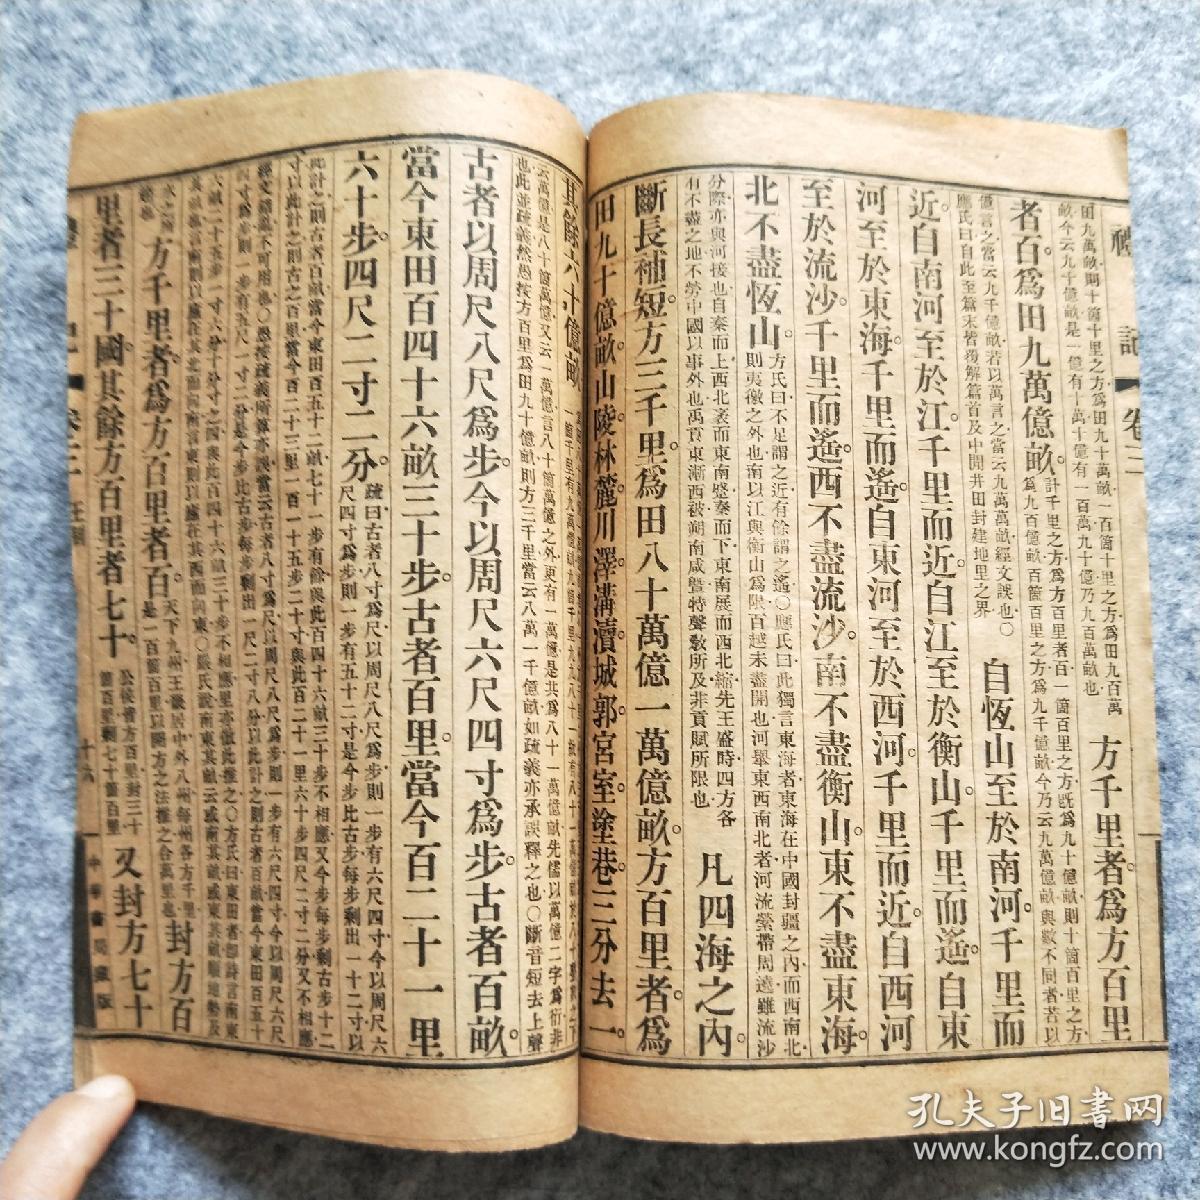 禮記 卷三
田九萬畝則十箇十里之方爲田九十萬畝一百箇十里之方爲田九百萬
畝今云九十億畝是一億有十萬十億有一百萬九十億乃九百萬畝也
方千里者爲方百里
者百爲田九萬億畝
計千里之方爲方百里者百一箇百里之方既爲九十億畝則十箇百里之方
爲九百億畝百箇百里之方爲九千億畝今乃云九萬億畝與數不同者若以
億言之當云九千億畝若以萬言之當云九萬萬畝經文誤也○
應氏曰自此至篇末皆覆解篇首及中間井田封建地里之界
自恆山至於南河千里而
近自南河至於江千里而近自江至於衡山千里而遙自東
河至於東海千里而遙自東河至於西河千里而近自西河
至於流沙千里而遙西不盡流沙南不盡衡山東不盡東海
北不盡恆山
方氏曰不足謂之近有餘謂之遙○應氏曰此獨言東海者東海在中國封疆之內而西南北
則夷徼之外也南以江與衡山爲限百越未盡開也河舉東西南北者河流縈帶周遶雖流沙
分際亦與河接也自秦而上西北袤而東南蹙秦而下東南展而西北縮先王盛時四方各
有不盡之地不勞中國以事外也禹貢東漸西被朔南咸曁特聲敎所及非貢賦所限也
凡四海之內
斷長補短方三千里爲田八十萬億一萬億畝方百里者爲
田九十億畝山陵林麓川澤溝瀆城郭宮室塗巷三分去一
其餘六十億畝
云萬億是八十箇萬億又云一萬億言八十箇萬億之外更有一萬億是共爲八十一萬億畝先儒以萬億二字爲衍非
也此並疏義然愚按方百里爲田九十億畝則方三千里當云八萬一千億畝如疏義亦承誤釋之也○斷音短去上聲
古者以周尺八尺爲步今以周尺六尺四寸爲步古者百畝
當今東田百四十六畝三十步古者百里當今百二十一里
六十步四尺二寸二分
疏曰古者八寸爲尺以周尺八尺爲步則一步有六尺四寸今以周尺六
尺四寸爲步則一步有五十二寸是今步比古步每步剩出一十二寸以
此計之則古者百畝當今東田百五十二畝七十一步有餘與此百四十六畝三十步不相應又今步每步剩古步十二
寸以此計之則古之百里當今百二十三里一百一十五步二十寸與此百二十一里六十步四尺二寸二分又不相應
方千里者爲方百里者百
天下九州王畿居中外八州每州各方千里
是一百箇百里以開方之法推之合萬里也
封方百
里者三十國其餘方百里者七十
公侯皆方百里封三十
箇百里剩七十箇百里
又封方七十
十六
中華書局藏版
孔夫子旧書网
www.kongfz.com